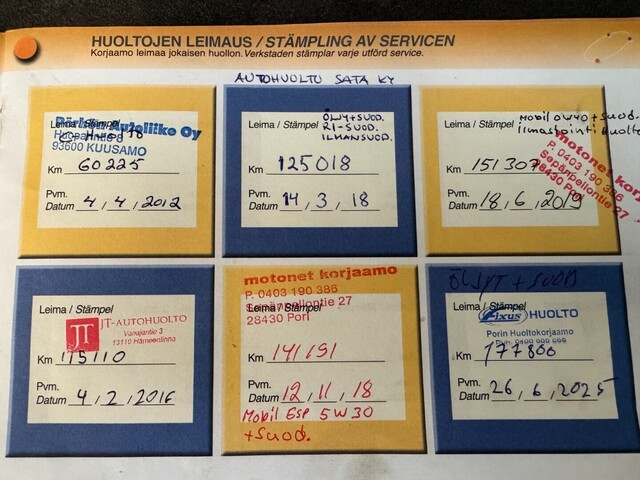 HUOLTOJEN LEIMAUS / STÄMPLING AV SERVICEN
Korjaamo leimaa jokaisen huollon. Verkstaden stämplar varje utförd service.
AUTOHUOLTO SATA KY
Leima / Stämpel
Autoliike Oy
93600 KUUSAMO
Km 60225
Pvm.
Datum 4, 4, 2012
Leima / Stämpel
ÖLJY+SUOD.
RI-SUOD.
ILMANSUOD.
Km 125018
Pvm.
Datum 14, 3, 18
Leima / Stämpel
Mobil 0W40 + suod.
ilmastointi
motonet
P. 0403 190 386
Sepänpellontie 27
28430 Pori
Km 151307
Pvm.
Datum 18, 6, 2019
Leima / Stämpel
JT JT-AUTOHUOLTO
Vanajantie 3
13110 Hämeenlinna
Km 115110
Pvm.
Datum 4, 2, 2016
motonet korjaamo
P. 0403 190 386
Leima / Stämpel
Sepänpellontie 27
28430 Pori
Km 141191
Pvm.
Datum 12, 11, 18
Mobil ESP 5W30
+suod.
ÖLJYT + SUOD
Leima / Stämpel
Fixus HUOLTO
Porin Huoltokorjaamo
Km 177800
Pvm.
Datum 26, 6, 2025